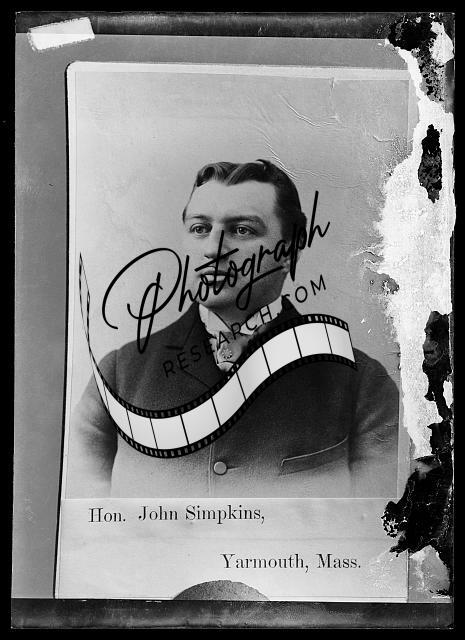 Photograph
RESEARCH.COM
Hon. John Simpkins,
Yarmouth, Mass.